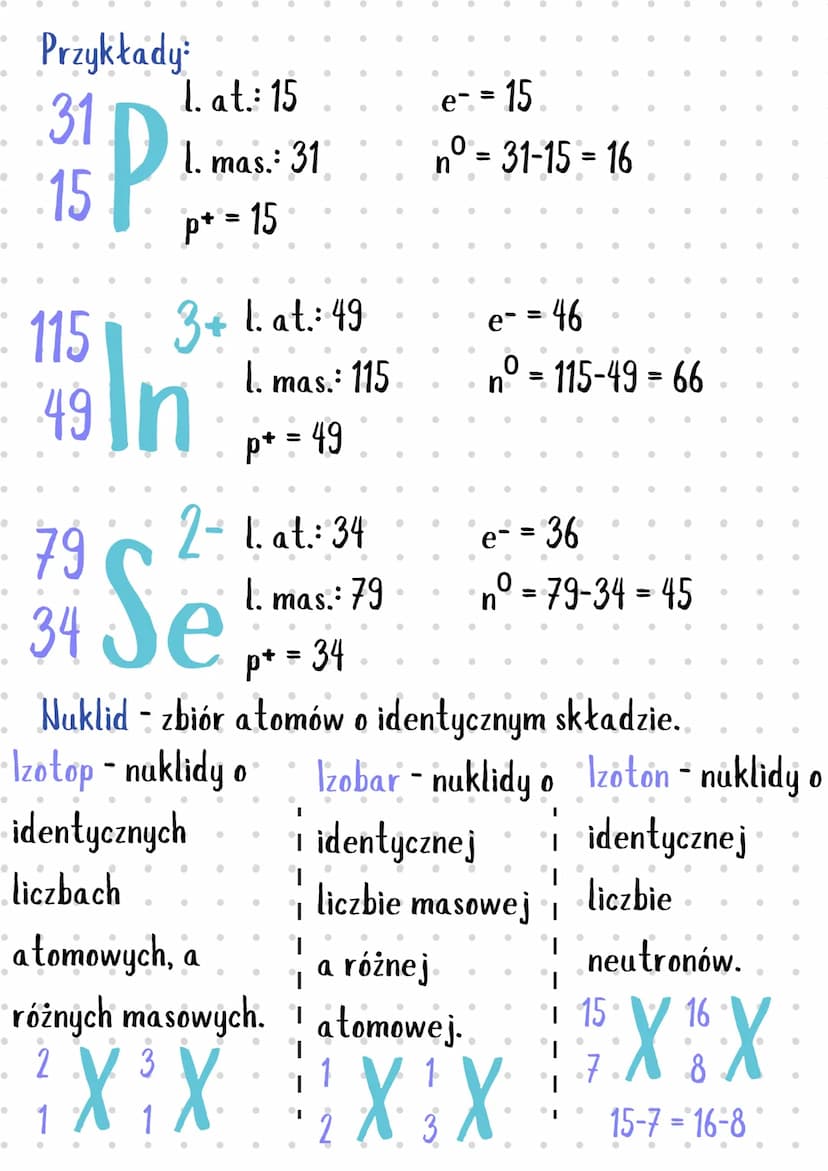 Przykłady:
31
15
P
l. at.: 15
l. mas.: 31
p+ = 15
e- = 15
n0 = 31-15 = 16
115
49
In
3+
l. at.: 49
l. mas.: 115
p+ = 49
e- = 46
n0 = 115-49 = 66
79
34
Se
2-
l. at.: 34
l. mas.: 79
p+ = 34
e- = 36
n0 = 79-34 = 45
Nuklid - zbiór atomów o identycznym składzie.
Izotop - nuklidy o
identycznych
liczbach
atomowych, a
różnych masowych.
2 3
X X
1 1
Izobar - nuklidy o
identycznej
liczbie masowej
a różnej
atomowej.
1 1
X X
2 3
Izoton - nuklidy o
identycznej
liczbie
neutronów.
15 16
X X
7 8
15-7 = 16-8